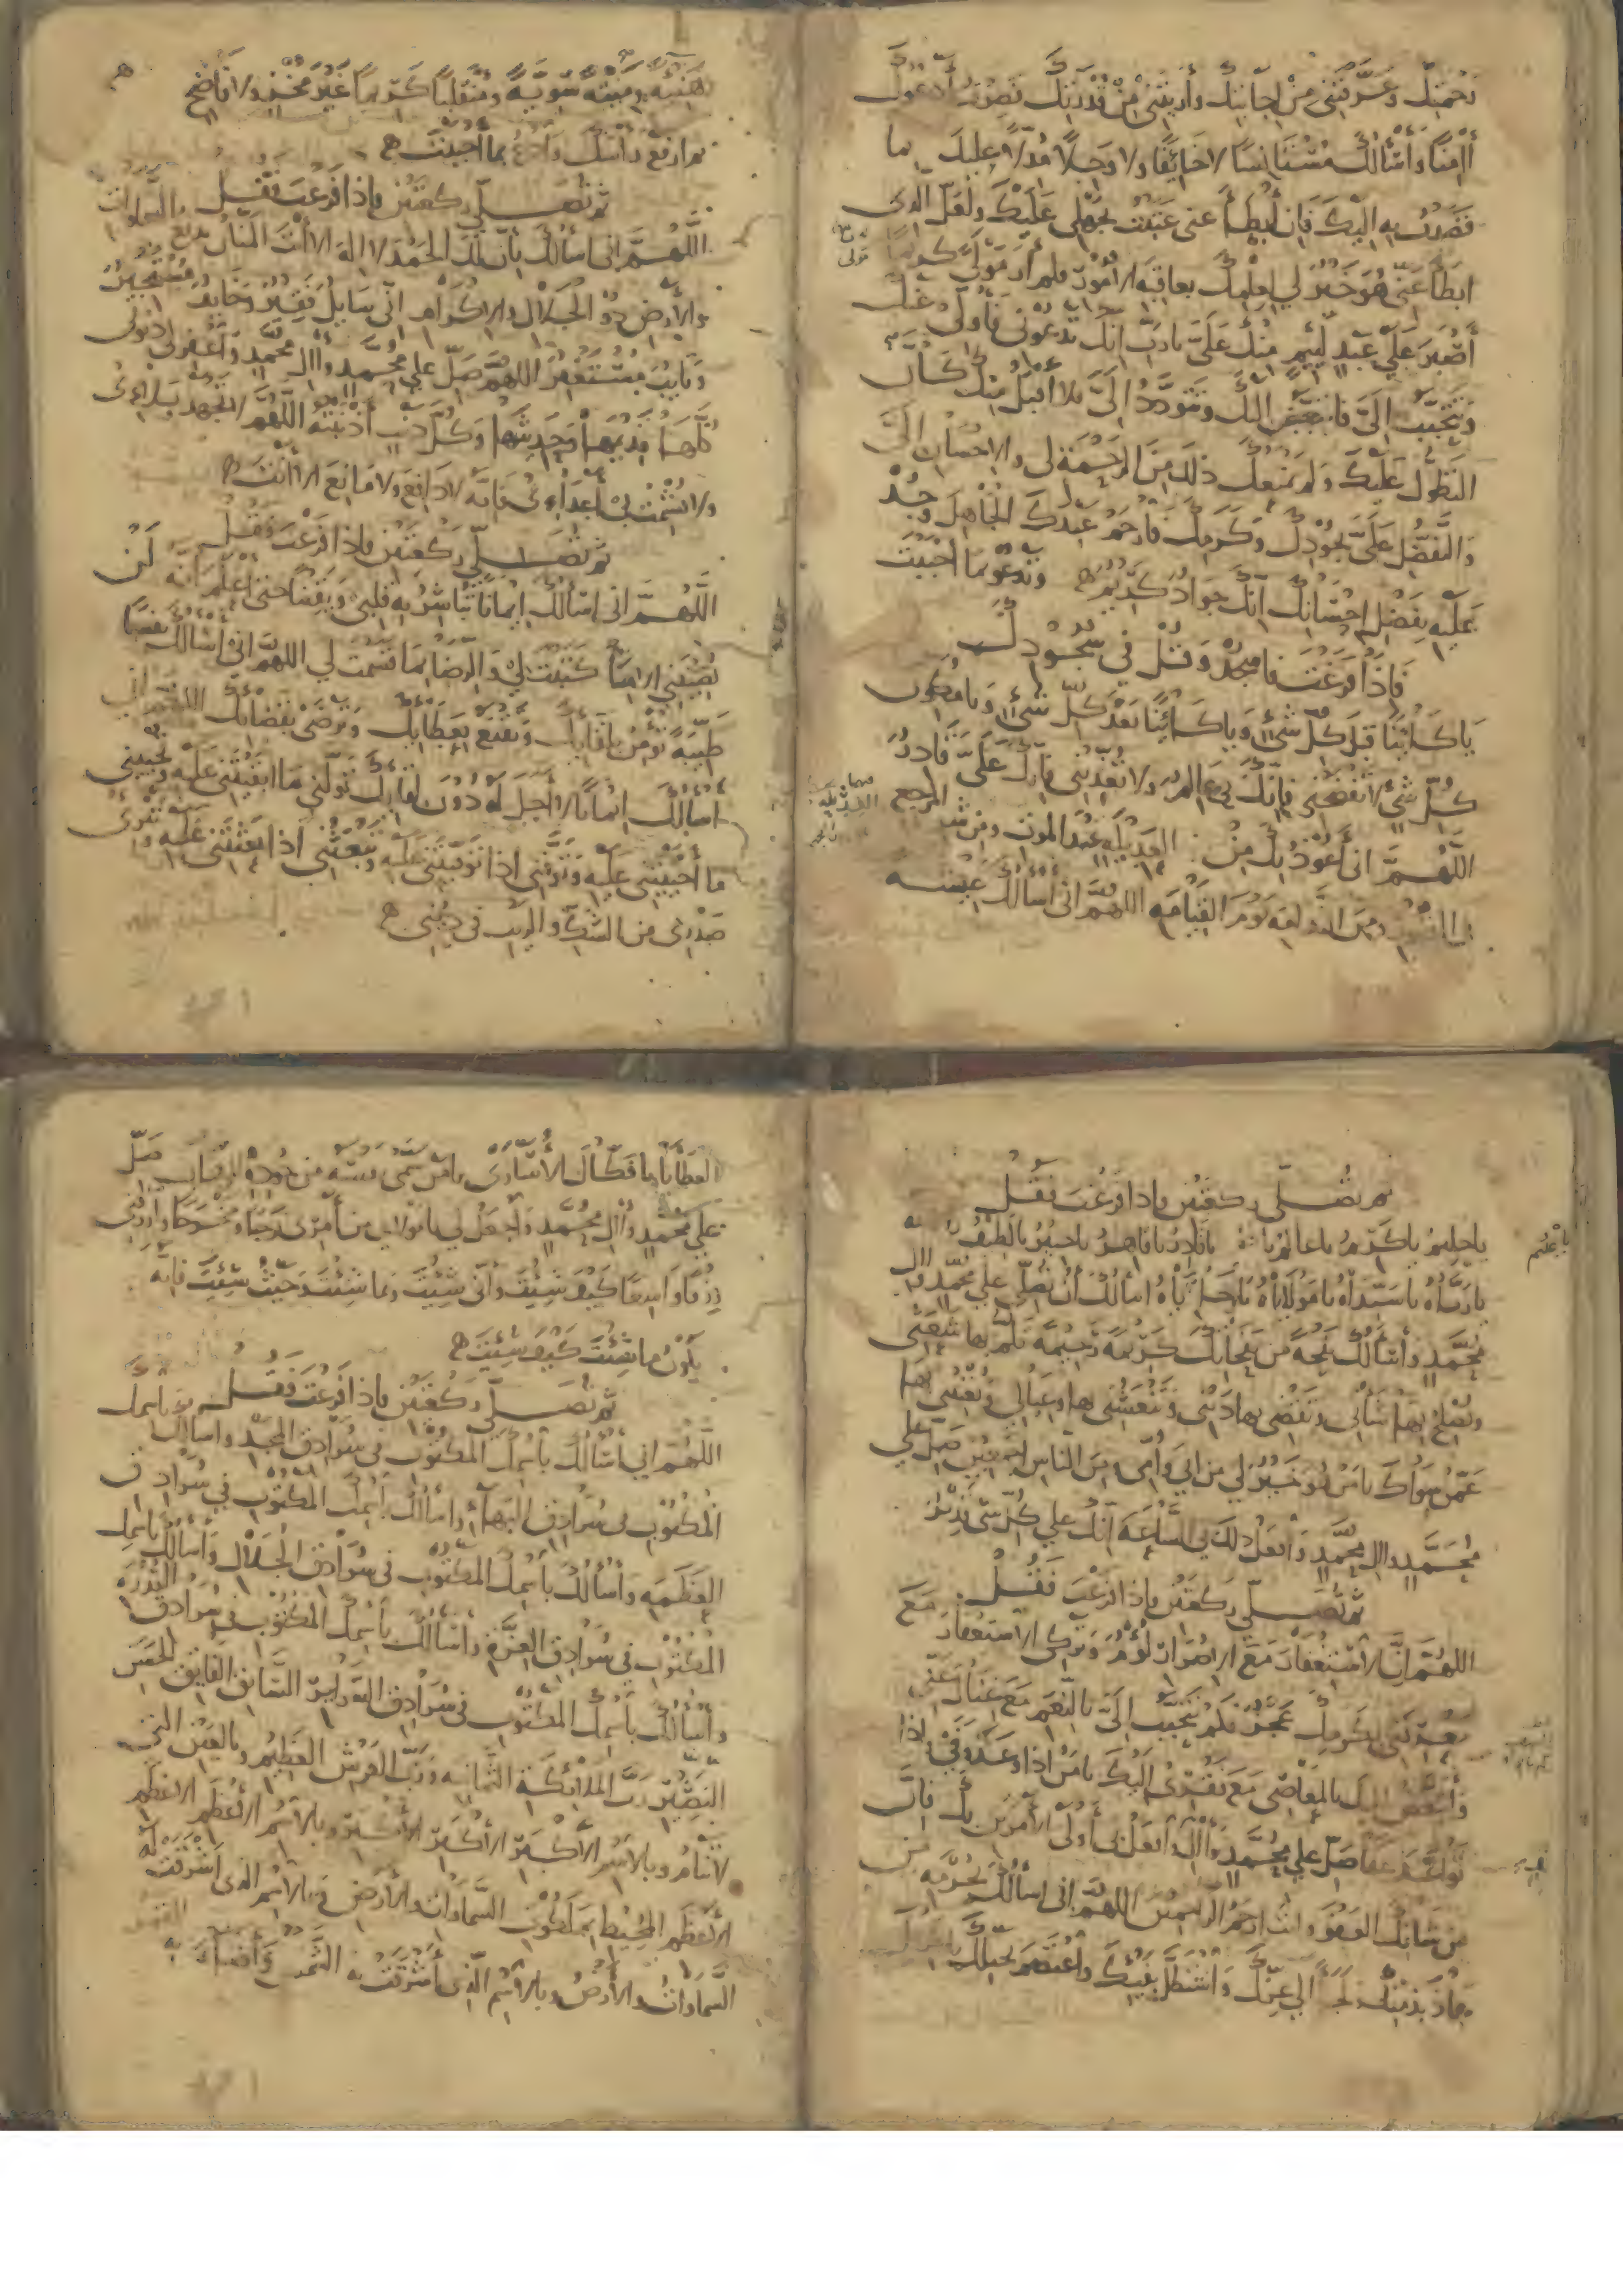 رحمتك وعرفتني من اجابتك وأريتني من قدرتك فصرت أدعوك
اامنا وأسألك مستأنسا لا خائفا ولا وجلا مدلا عليك بما
قصدت به اليك فان أبطأ عني عتبت بجهلي عليك ولعل الذي
ابطأ عني هو خير لي لعلمك بعاقبة الأمور فلم أر مولى كريما
أصبر على عبد لئيم منك علي يا رب انك تدعوني فأولي عنك
وتتحبب الي فاتبغض اليك وتتودد الي فلا أقبل منك كأن لي
التطول عليك ولم يمنعك ذلك من الرحمة لي والاحسان الي
والتفضل علي بجودك وكرمك فارحم عبدك الجاهل وجد
عليه بفضل احسانك انك جواد كريم ه وتدعو بما احببت
فاذا فرغت فاسجد وقل في سجودك
يا كائنا قبل كل شيء ويا كائنا بعد كل شيء ويا مكون
كل شيء لا تفضحني فانك بي عالم ولا تعذبني فانك علي قادر
اللهم اني أعوذ بك من العديلة عند الموت ومن شر المرجع
في القبور ومن الندامة يوم القيامة اللهم اني أسألك عيشة
هنيئة وميتة سوية ومنقلبا كريما غير مخز ولا فاضح
ثم ارفع رأسك وادع بما أحببت ه
ثم تصلي ركعتين فاذا فرغت فقل
اللهم اني اسألك بأن لك الحمد لا اله الا أنت المنان بديع السماوات
والأرض ذو الجلال والاكرام اني سايل فقير وخايف مستجير
وتايب مستغفر اللهم صل على محمد واال محمد واغفر لي ذنوبي
كلها قديمها وحديثها وكل ذنب أذنبته اللهم لا تجهد بلاءي
ولا تشمت بي أعداءي فانه لا دافع ولا مانع الا أنت ه
ثم تصلي ركعتين فاذا فرغت فقل
اللهم اني اسألك ايمانا تباشر به قلبي ويقينا حتى أعلم أنه لن
يصيبني الا ما كتبت لي والرضا بما قسمت لي اللهم اني أسألك نفسا
طيبة تؤمن بلقايك وتقنع بعطايك وترضى بقضائك اللهم اني
اسألك ايمانا لا أجل له دون لقايك تولني ما ابقيتني عليه وتحييني
ما أحييتني عليه وتوفني اذا توفيتني عليه وتبعثني اذا بعثتني عليه وتبرئ
صدري من الشك والريب في ديني ه
ثم تصلي ركعتين فاذا فرغت فقل
يا حليم يا كريم يا عالم يا قادر يا قاهر يا خبير يا لطيف
يا رباه يا سيداه يا مولاياه يا رجاياه اسألك أن تصلي على محمد واال
محمد وأسألك نفحة من نفحاتك كريمة رحيمة تلم بها شعثي
وتصلح بها شأني وتقضي بها ديني وتنعشني بها وعيالي وتغنيني بها
عمن سواك يا من هو خير لي من ابي وأمي ومن الناس اجمعين صل على
محمد واال محمد وافعل ذلك بي الساعة انك على كل شيء قدير
ثم تصلي ركعتين فاذا فرغت فقل
اللهم ان الاستغفار مع الاصرار لؤم وتركي الاستغفار مع
معرفتي بكرمك عجز فكم تتحبب الي بالنعم مع غناك عني
وأتبغض اليك بالمعاصي مع فقري اليك يا من اذا وعد وفى واذا
تواعد عفا صل على محمد واال وافعل بي أولى الأمرين بك فان
من شأنك العفو وأنت ارحم الراحمين اللهم اني اسألك بحرمة من
عاذ بذمتك ولجأ الى عزك واستظل بفيئك واعتصم بحبلك
العطايا يا فكاك الأسارى يا من سمى نفسه من جوده الوهاب صل
على محمد واال محمد واجعل لي يا مولاي من أمري فرجا ومخرجا وارزقني
رزقا واسعا كيف شئت وأنى شئت وبما شئت وحيث شئت فانه
يكون ما شئت كيف شئت ه
ثم تصلي ركعتين فاذا فرغت فقل
اللهم اني أسألك باسمك المكتوب في سرادق المجد واسألك باسمك
المكتوب في سرادق البهاء وأسألك باسمك المكتوب في سرادق
العظمة وأسألك باسمك المكتوب في سرادق الجلال وأسألك باسمك
المكتوب في سرادق العزة وأسألك باسمك المكتوب في سرادق القدرة
وأسألك باسمك المكتوب في سرادق السراير السابق الفايق الحسن
النضير رب الملائكة الثمانية ورب العرش العظيم وبالعين التي
لا تنام وبالاسم الأكبر الأكبر الأكبر وبالاسم الأعظم الأعظم
الأعظم المحيط بملكوت السماوات والأرض وبالاسم الذي أشرقت له
السماوات والأرض وبالاسم الذي أشرقت به الشمس وأضاء به القمر